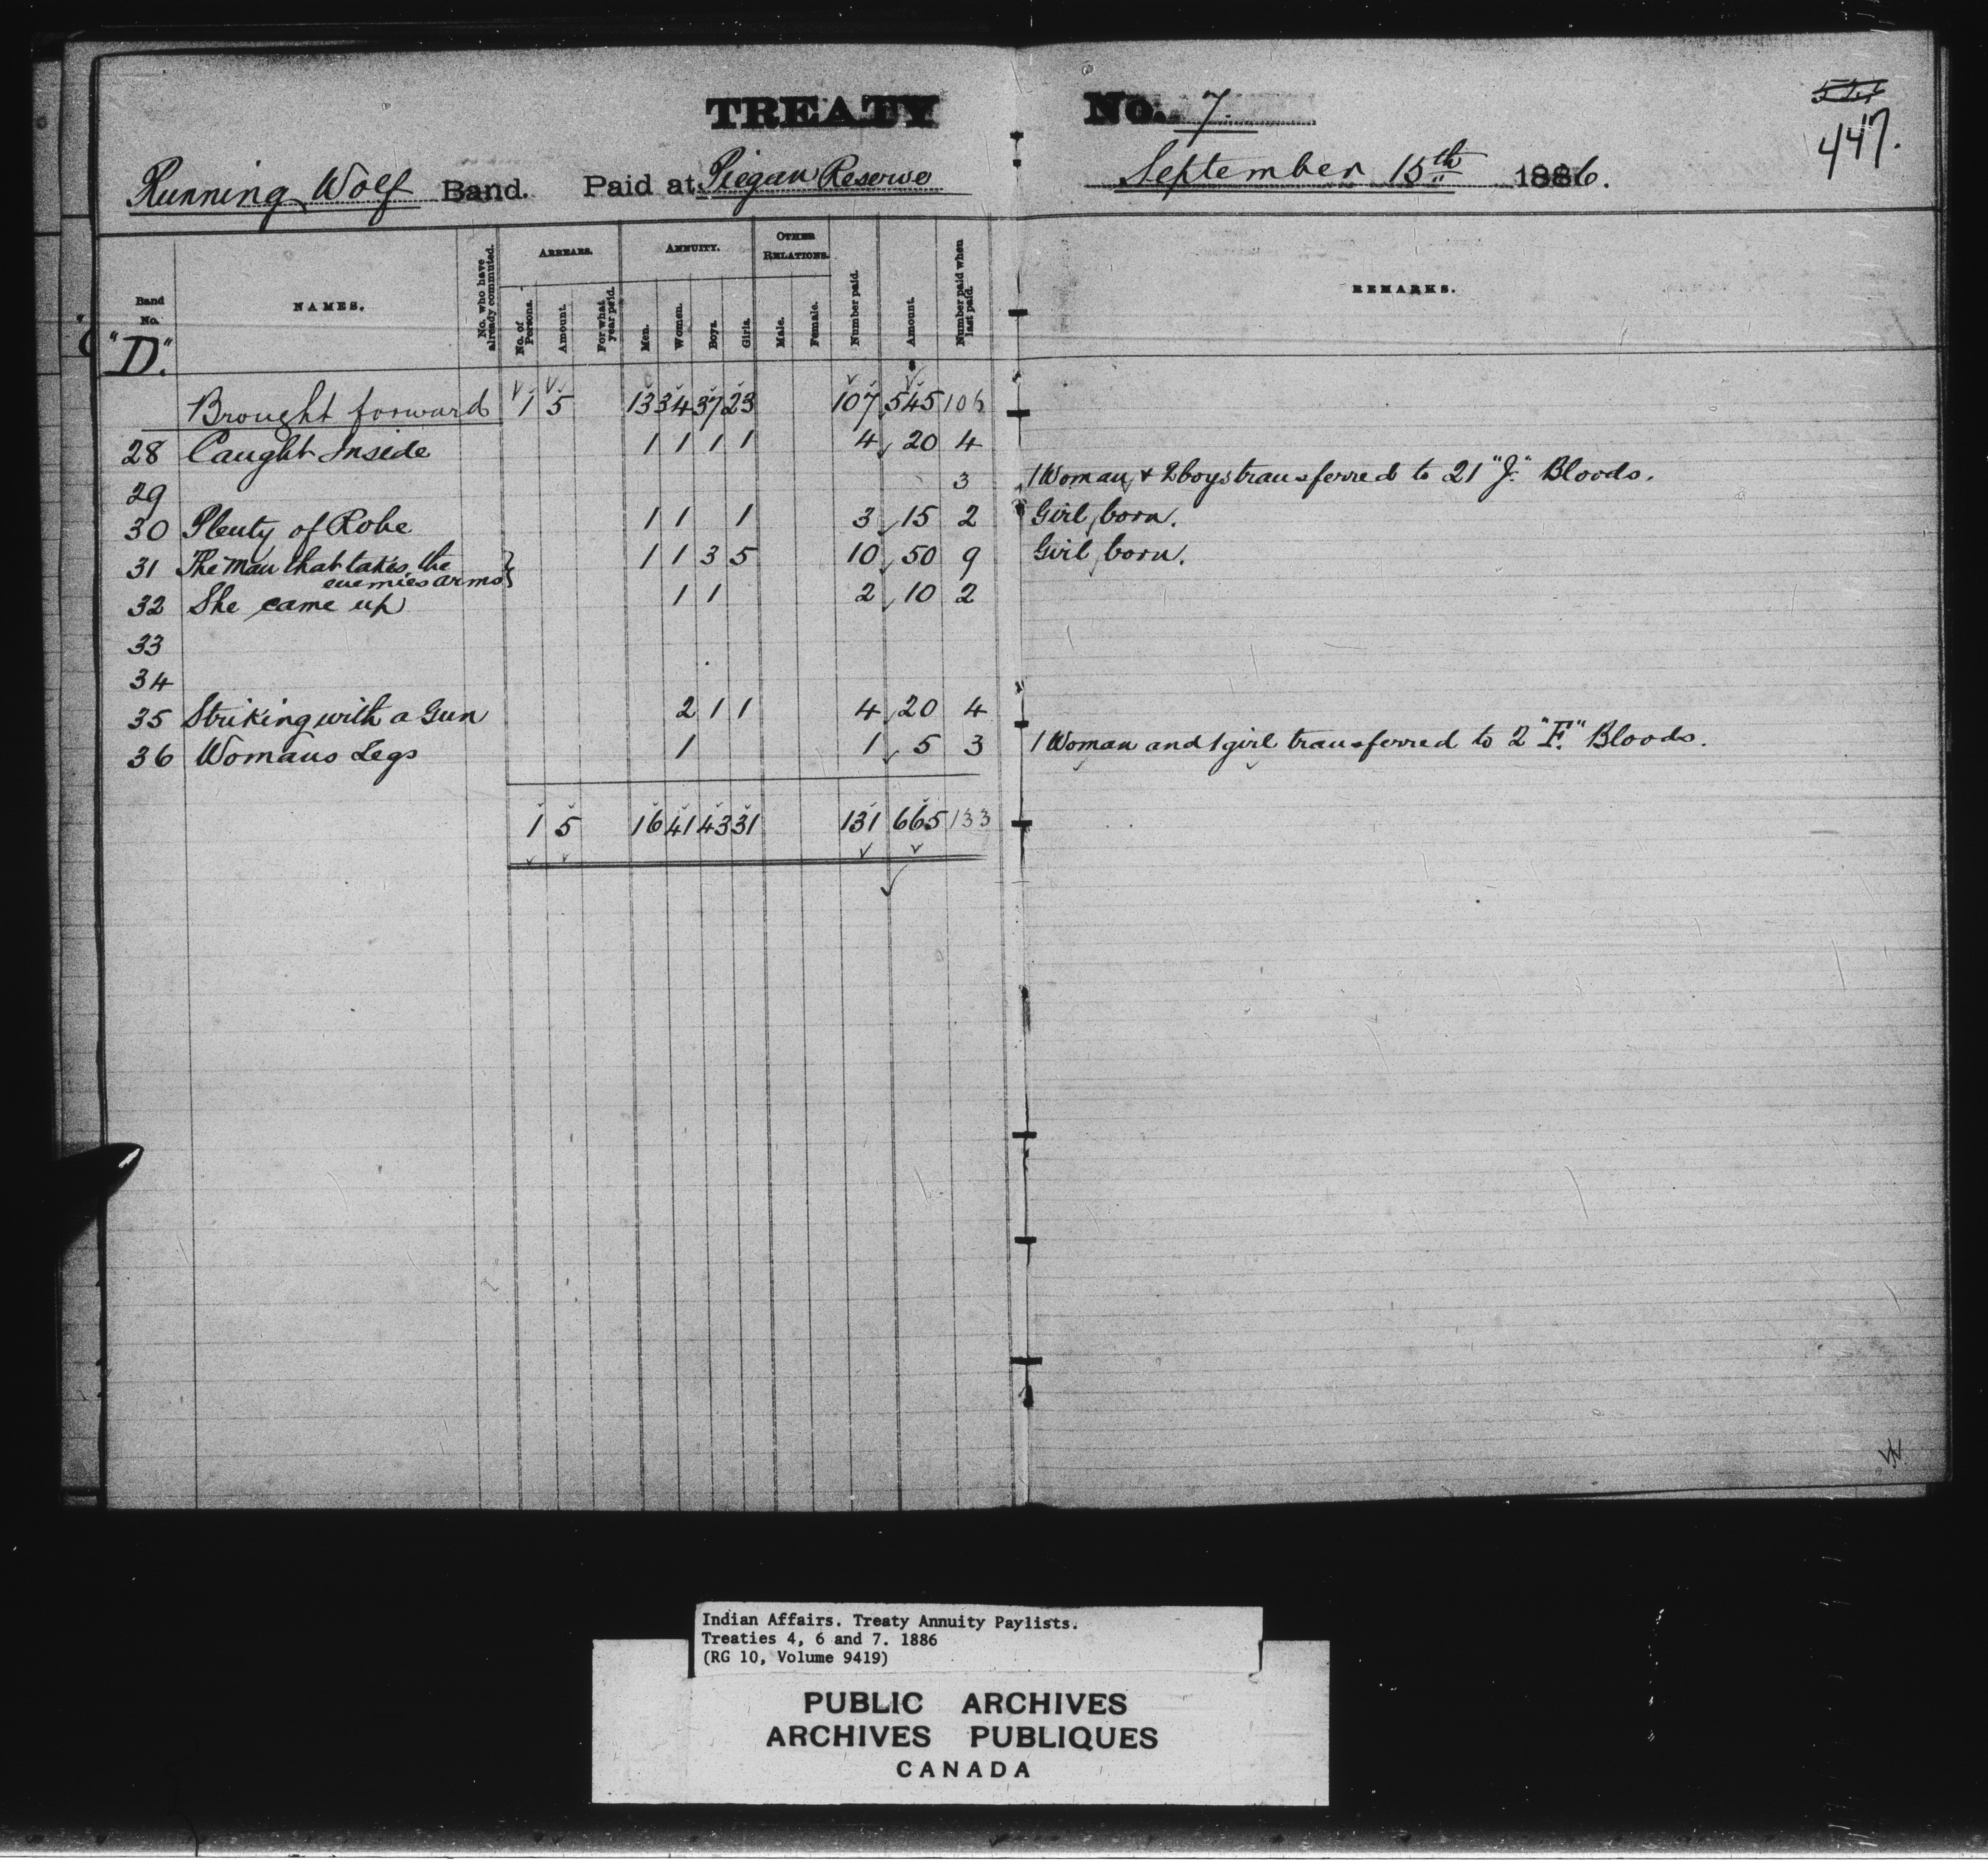 TREATY No. 7.
447.
Running Wolf Band. Paid at Piegan Reserve September 15th 1886.
Band No. NAMES. No. who have already commuted. ARREARS. No. of Persons. Amount. For what year paid. ANNUITY. Men. Women. Boys. Girls. OTHER RELATIONS. Male. Female. Number paid. Amount. Number paid when last paid. REMARKS.
"D."
Brought forward 1 5 13 34 37 23 107 545 106
28 Caught Inside 1 1 1 1 4 20 4
29 3 1 Woman & 2 boys transferred to 21 "J." Bloods.
30 Plenty of Robe 1 1 1 3 15 2 Girl born.
31 The Man that takes the 1 1 3 5 10 50 9 Girl born.
enemies arms
32 She came up 1 1 2 10 2
33
34
35 Striking with a Gun 2 1 1 4 20 4
36 Womans Legs 1 1 5 3 1 Woman and 1 girl transferred to 2 "F." Bloods.
1 5 16 41 43 31 131 665 133
Indian Affairs. Treaty Annuity Paylists.
Treaties 4, 6 and 7. 1886
(RG 10, Volume 9419)
PUBLIC ARCHIVES
ARCHIVES PUBLIQUES
CANADA